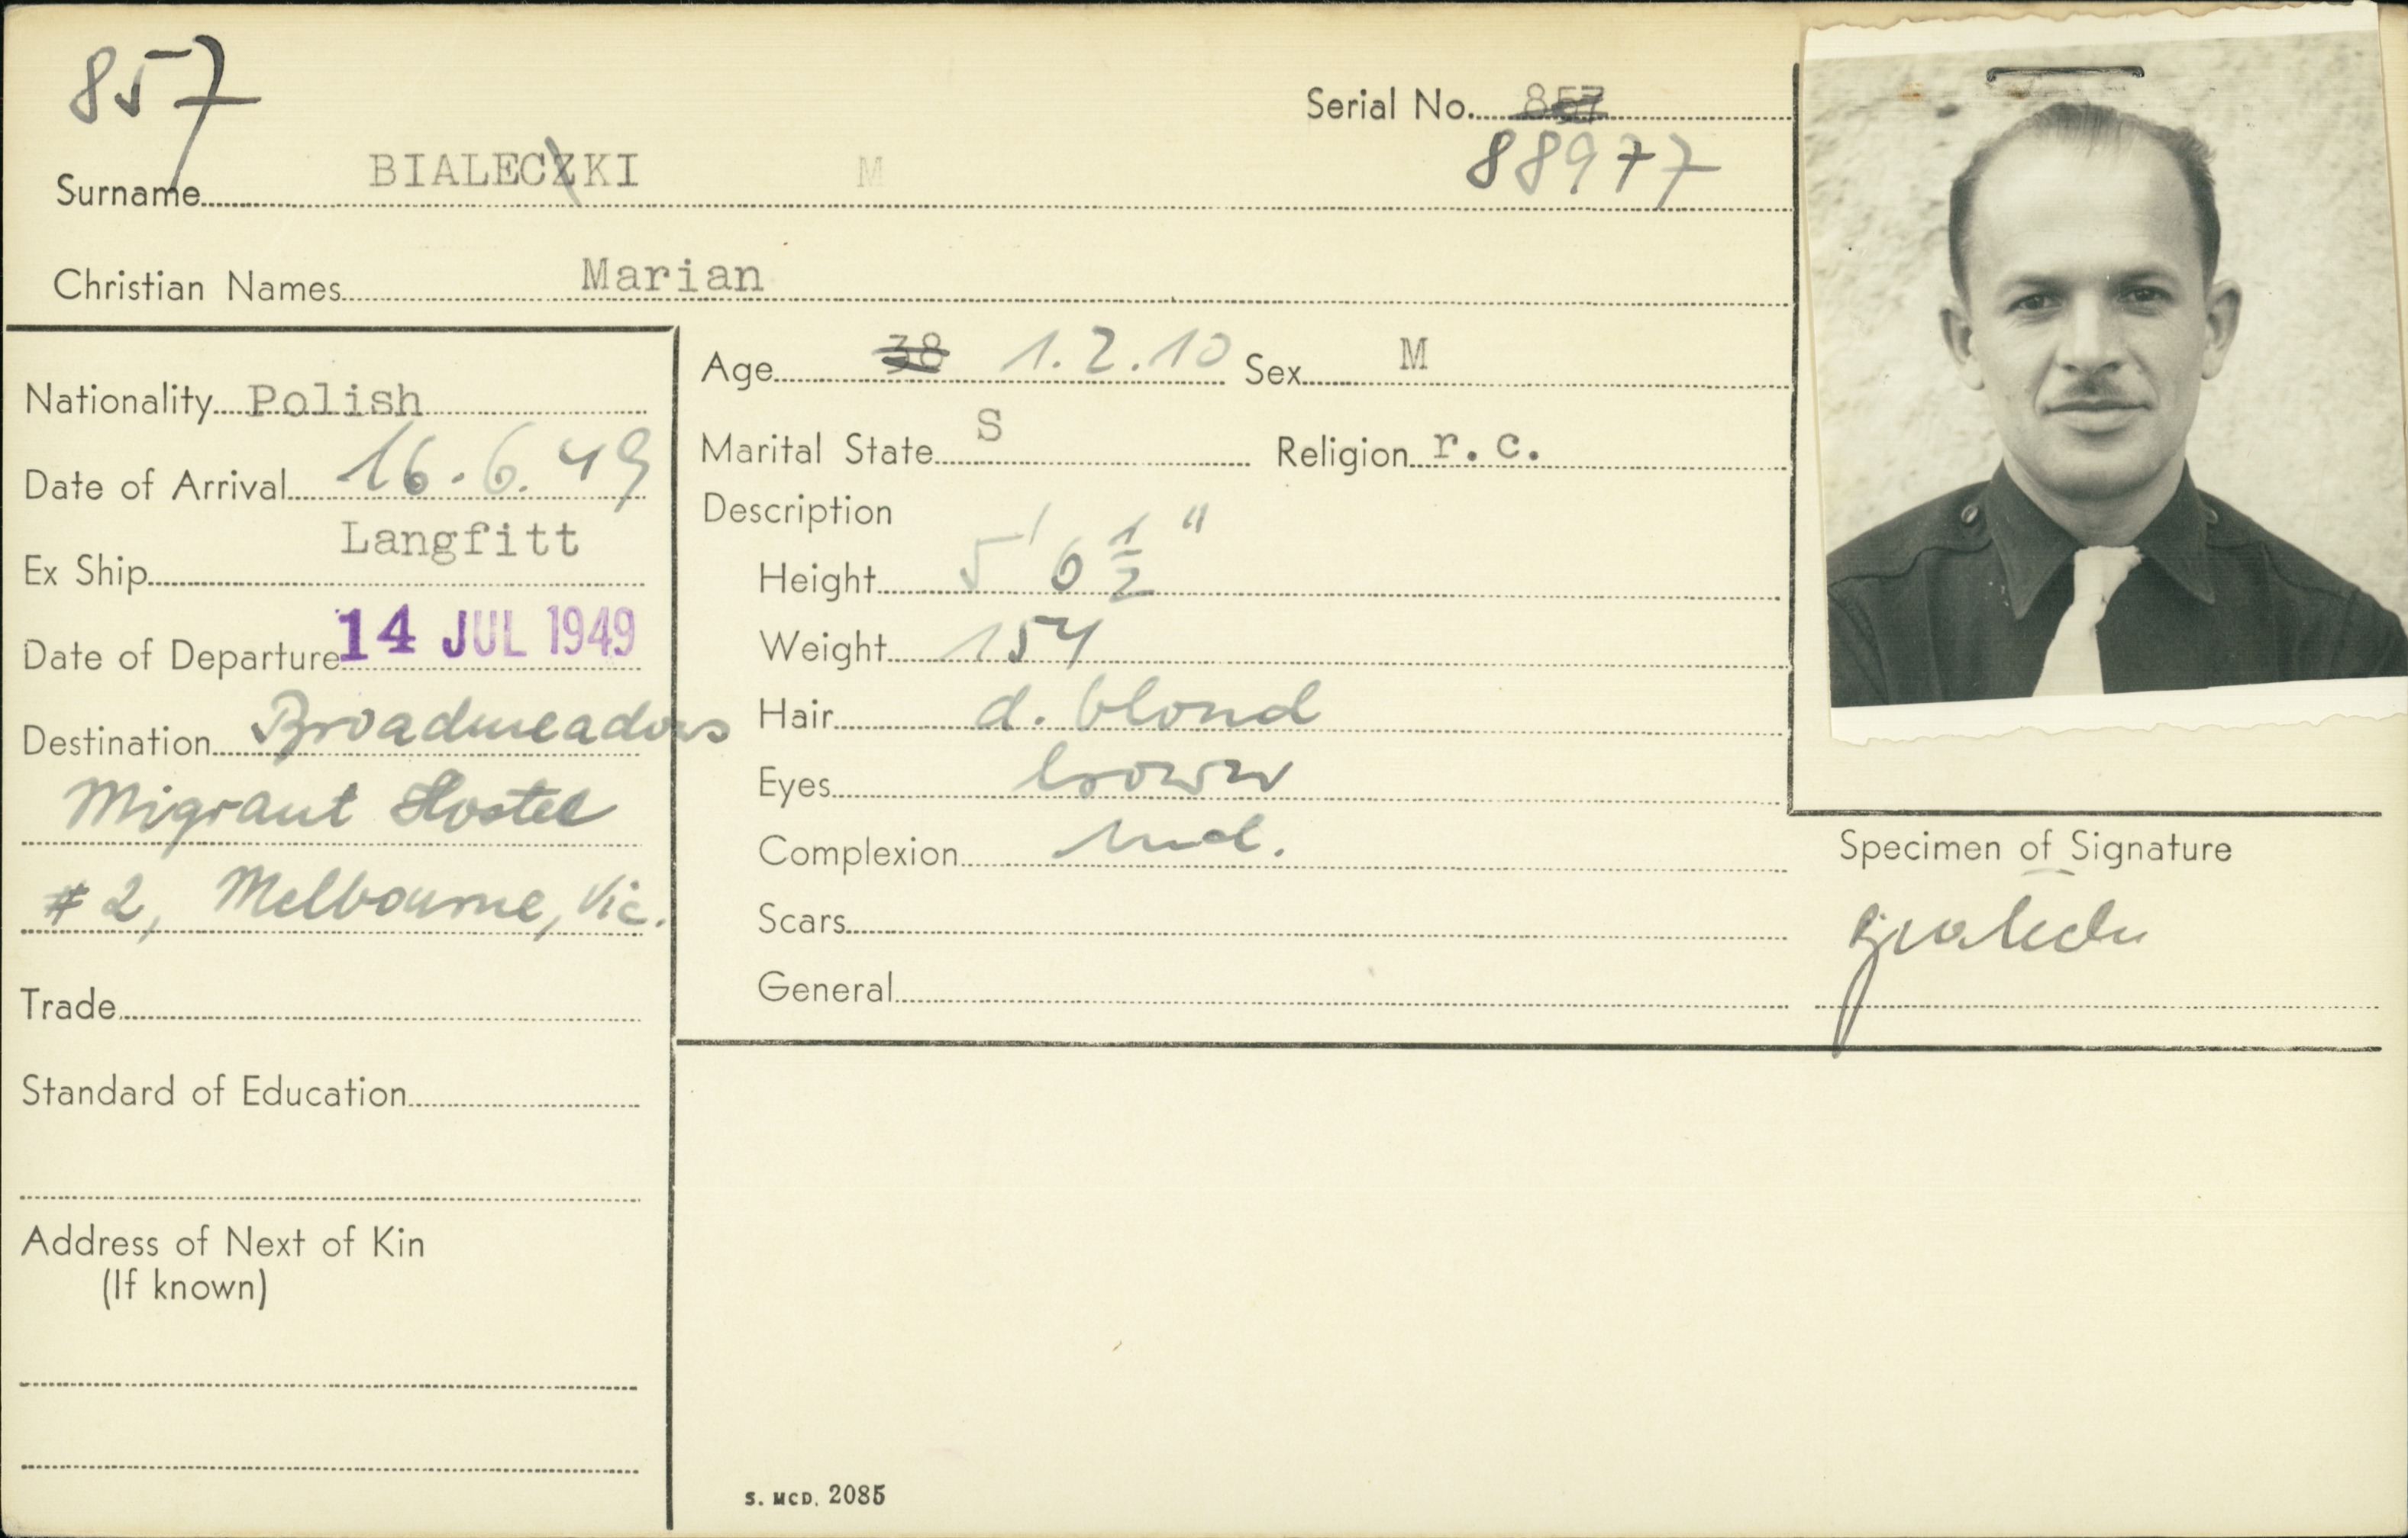 857
Serial No. 857
88977
Surname BIALECZKI M
Christian Names Marian
Nationality Polish
Date of Arrival 16.6.49
Ex Ship Langfitt
Date of Departure 14 JUL 1949
Destination Broadmeadows
Migrant Hostel
# 2, Melbourne, Vic.
Trade
Standard of Education
Address of Next of Kin
(If known)
Age 38 1.2.10 Sex M
Marital State S Religion r.c.
Description
Height 5' 6 1/2 "
Weight 154
Hair d. blond
Eyes brown
Complexion med.
Scars
General
Specimen of Signature
S. MCD. 2085